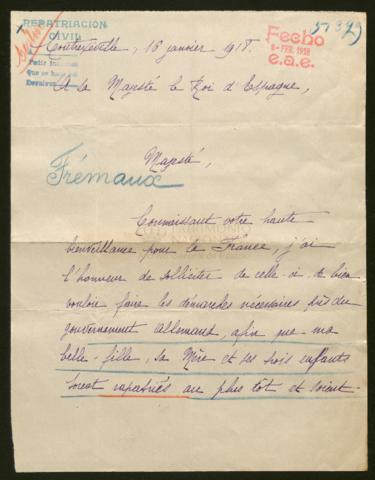 REPATRIACION
CIVIL
51399
Fecho
8-FEB. 1918
e.a.e.
Contrexéville, 16 janvier 1918.
A sa Majesté le Roi d'Espagne,
Pedir informes
que se haga
Majesté,
Frémaux
PATRIMONIO
NACIONAL
Connaissant votre haute
bienveillance pour la France, j'ai
l'honneur de solliciter de celle-ci de bien
vouloir faire les démarches nécessaires près du
gouvernement allemand, afin que ma
belle-fille, sa Mère et ses trois enfants
soient rapatriés au plus tôt et soient